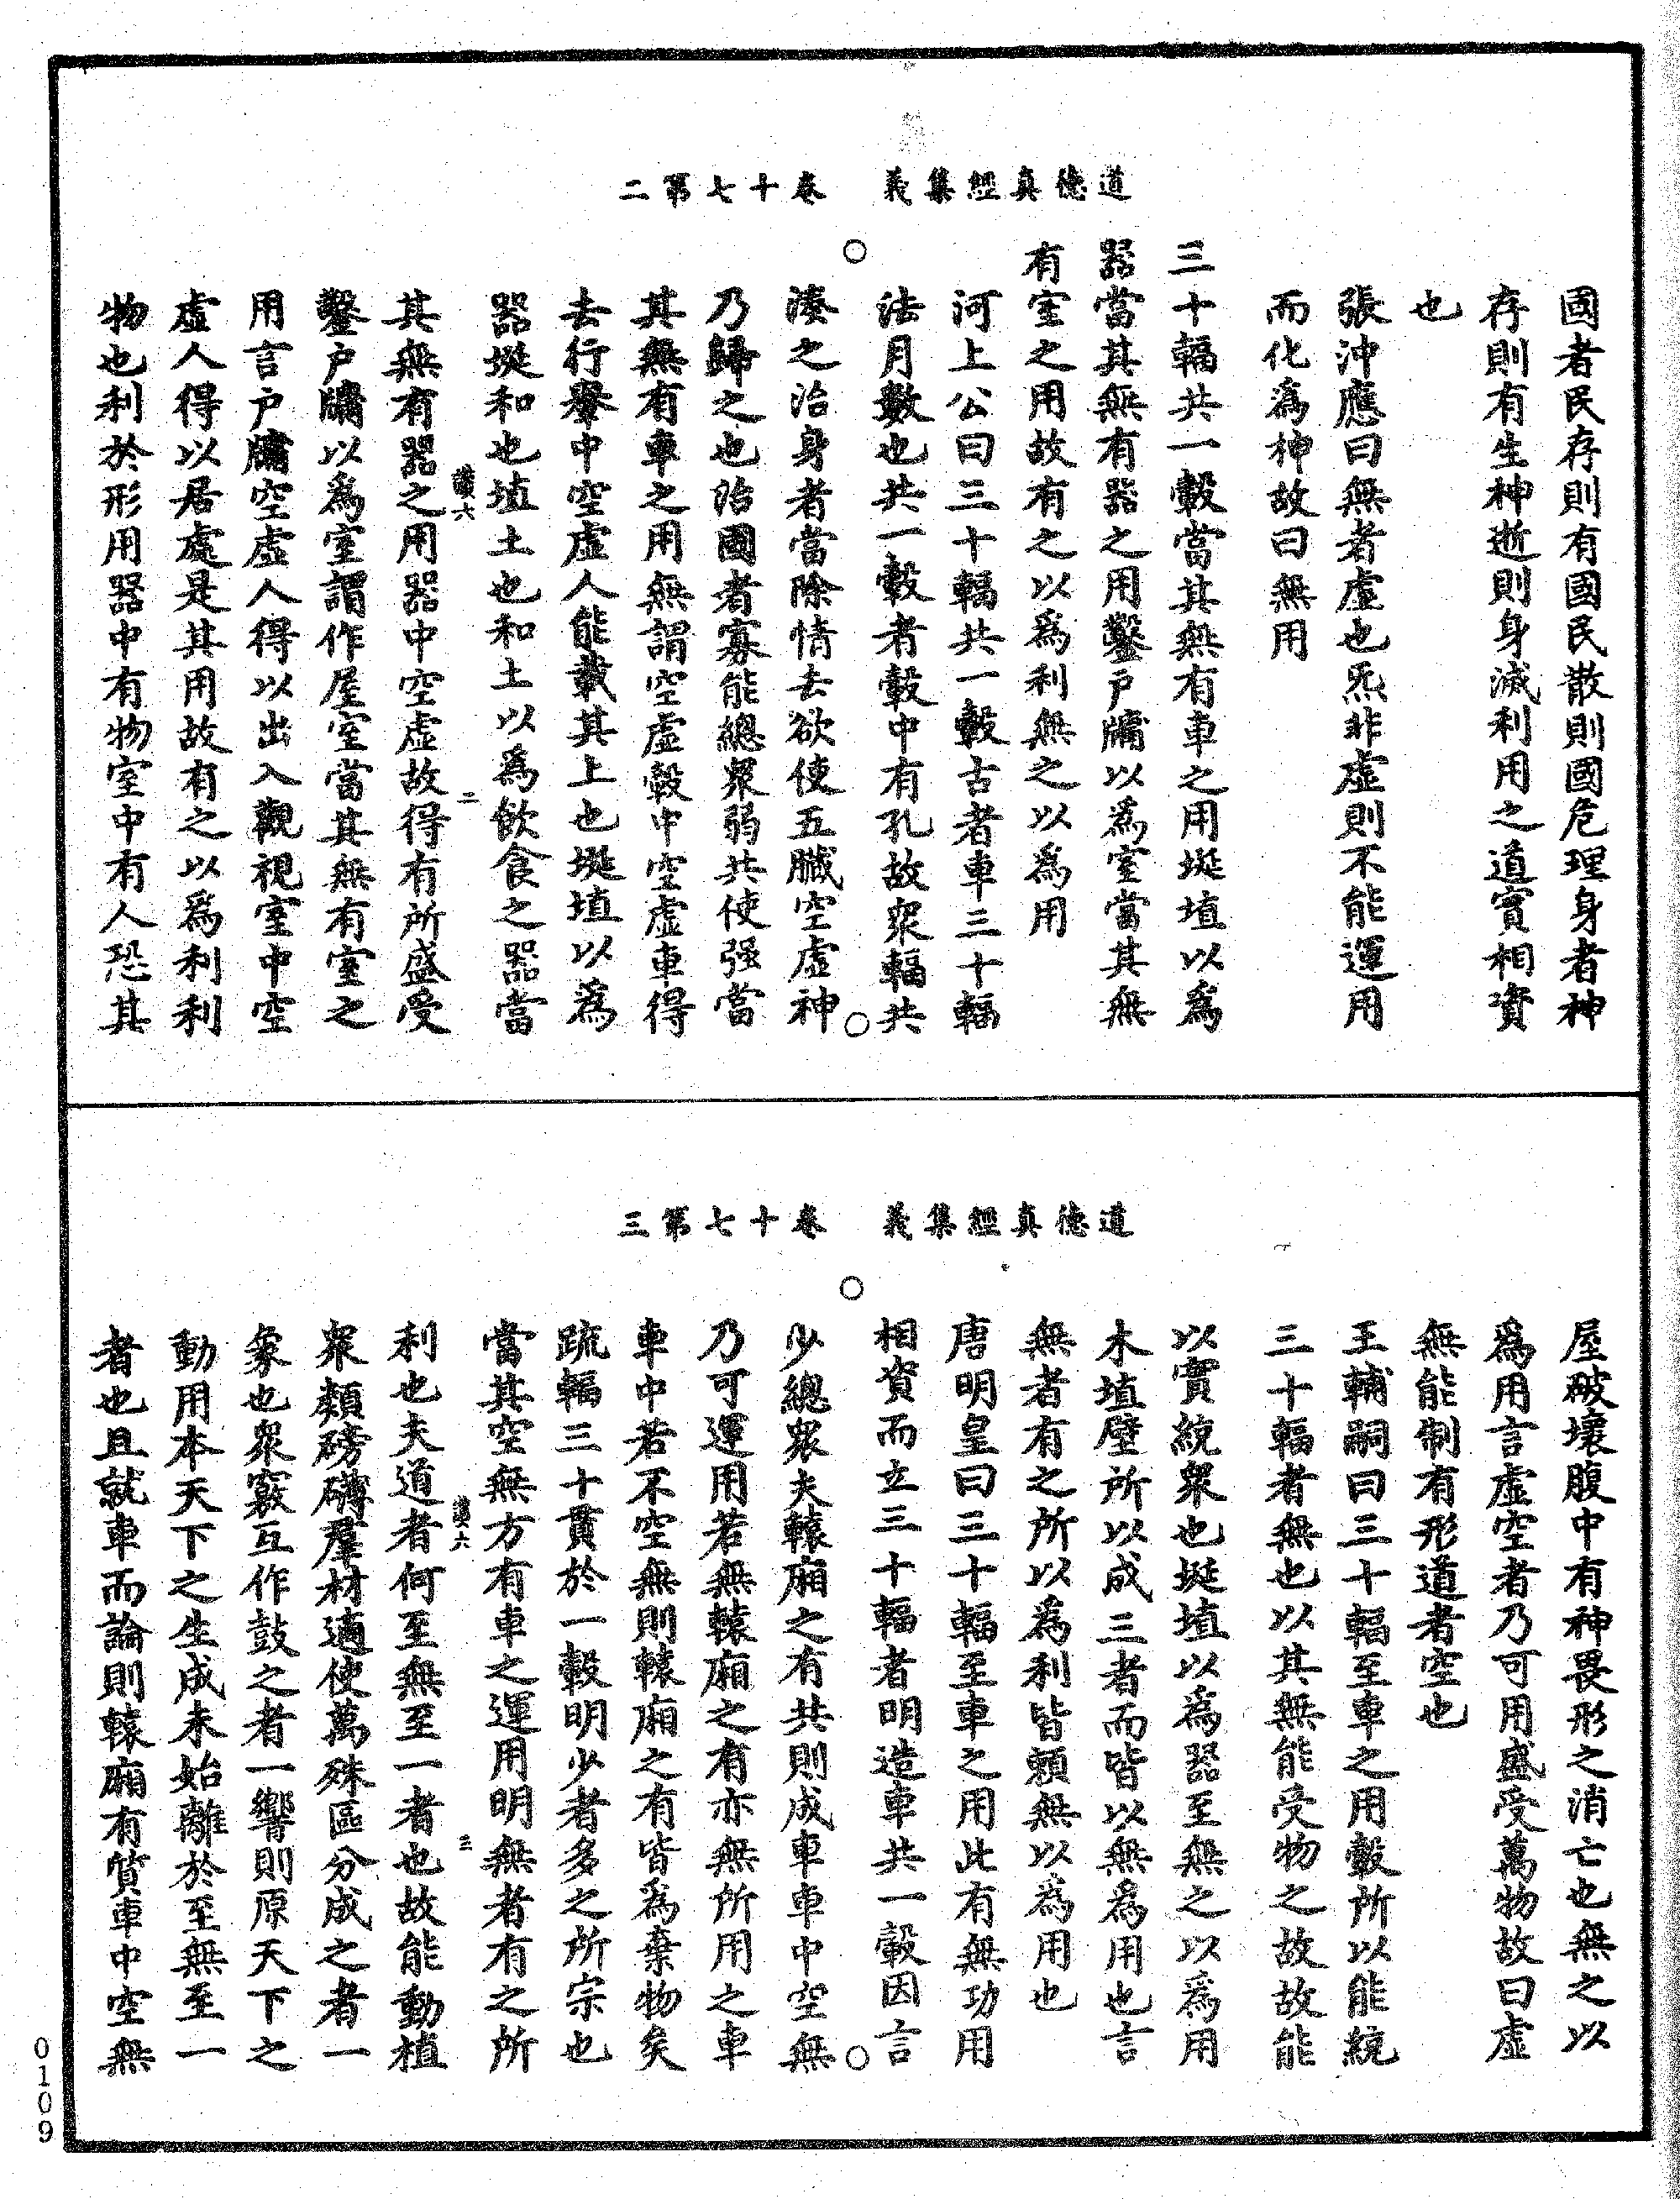 道德真經集義　卷十七第二
國者民存則有國民散則國危理身者神
存則有生神逝則身滅利用之道實相資
也
張沖應曰無者虛也炁非虛則不能運用
而化為神故曰無用
三十輻共一轂當其無有車之用埏埴以為
器當其無有器之用鑿戶牖以為室當其無
有室之用故有之以為利無之以為用
河上公曰三十輻共一轂古者車三十輻
法月數也共一轂者轂中有孔故眾輻共
湊之治身者當除情去欲使五臟空虛神
乃歸之也治國者寡能總眾弱共使强當
其無有車之用無謂空虛轂中空虛車得
去行轝中空虛人能載其上也埏埴以為
器埏和也埴土也和土以為飲食之器當
讚六　二
其無有器之用器中空虛故得有所盛受
鑿戶牖以為室謂作屋室當其無有室之
用言戶牖空虛人得以出入觀視室中空
虛人得以居處是其用故有之以為利利
物也利於形用器中有物室中有人恐其
道德真經集義　卷十七第三
屋破壞腹中有神畏形之消亡也無之以
為用言虛空者乃可用盛受萬物故曰虛
無能制有形道者空也
王輔嗣曰三十輻至車之用轂所以能統
三十輻者無也以其無能受物之故故能
以實統眾也埏埴以為器至無之以為用
木埴壁所以成三者而皆以無為用也言
無者有之所以為利皆賴無以為用也
唐明皇曰三十輻至車之用此有無功用
相資而立三十輻者明造車共一轂因言
少總眾夫轅廂之有共則成車車中空無
乃可運用若無轅廂之有亦無所用之車
車中若不空無則轅廂之有皆為棄物矣
疏輻三十貫於一轂明少者多之所宗也
當其空無方有車之運用明無者有之所
讚六　三
利也夫道者何至無至一者也故能動植
眾類磅礴羣材適使萬殊區分成之者一
象也眾竅互作鼓之者一響則原天下之
動用本天下之生成未始離於至無至一
者也且就車而論則轅廂有質車中空無
0109